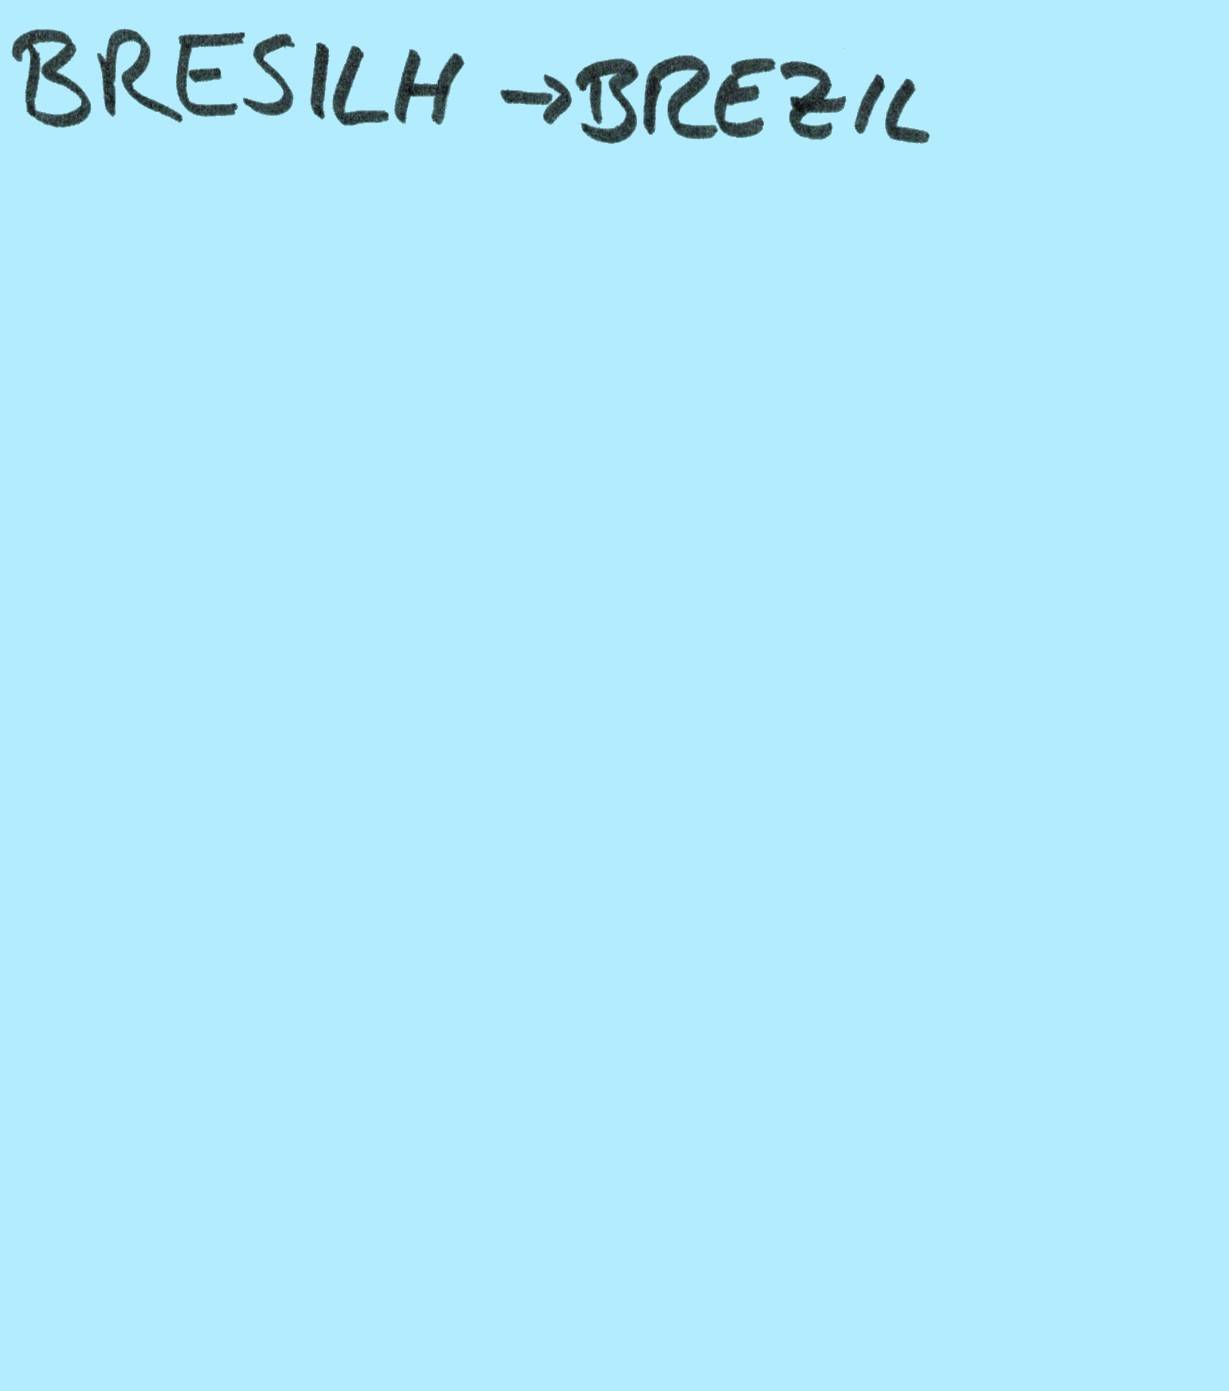 BRESILH → BREZIL